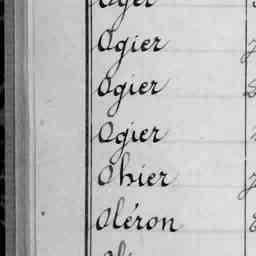 Oger
Ogier
Ogier
Ogier
Ohier
Oléron